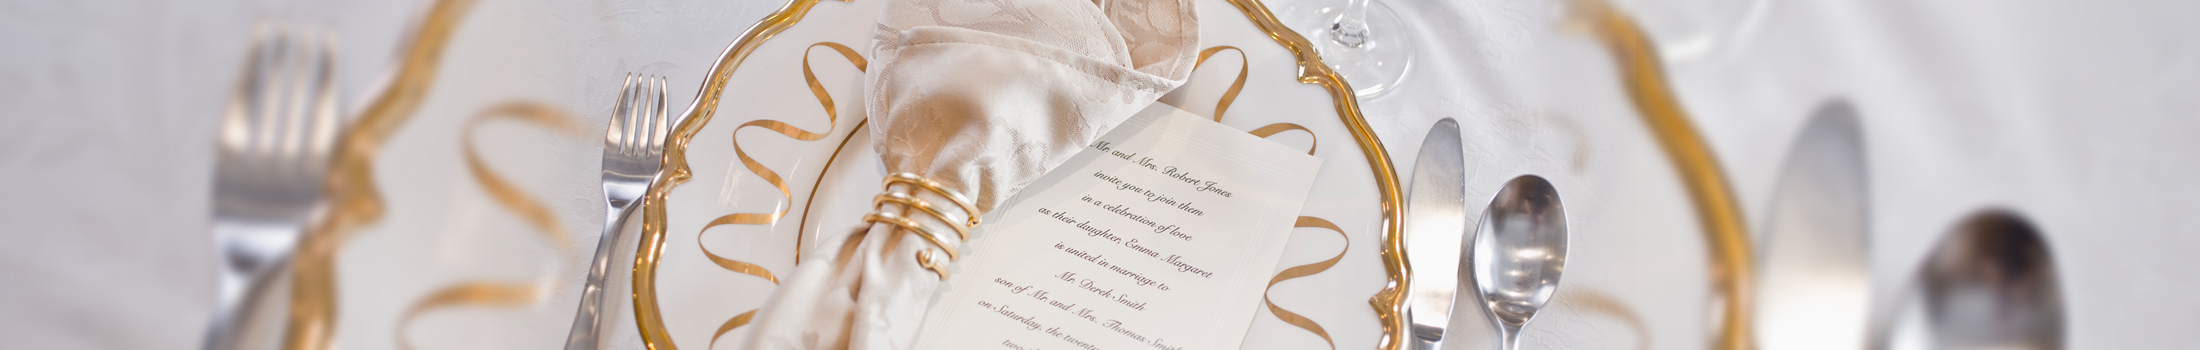 Mr. and Mrs. Robert Jones
invite you to join them
in a celebration of love
as their daughter, Emma Margaret
is united in marriage to
Mr. Derek Smith
son of Mr. and Mrs. Thomas Smith
on Saturday, the